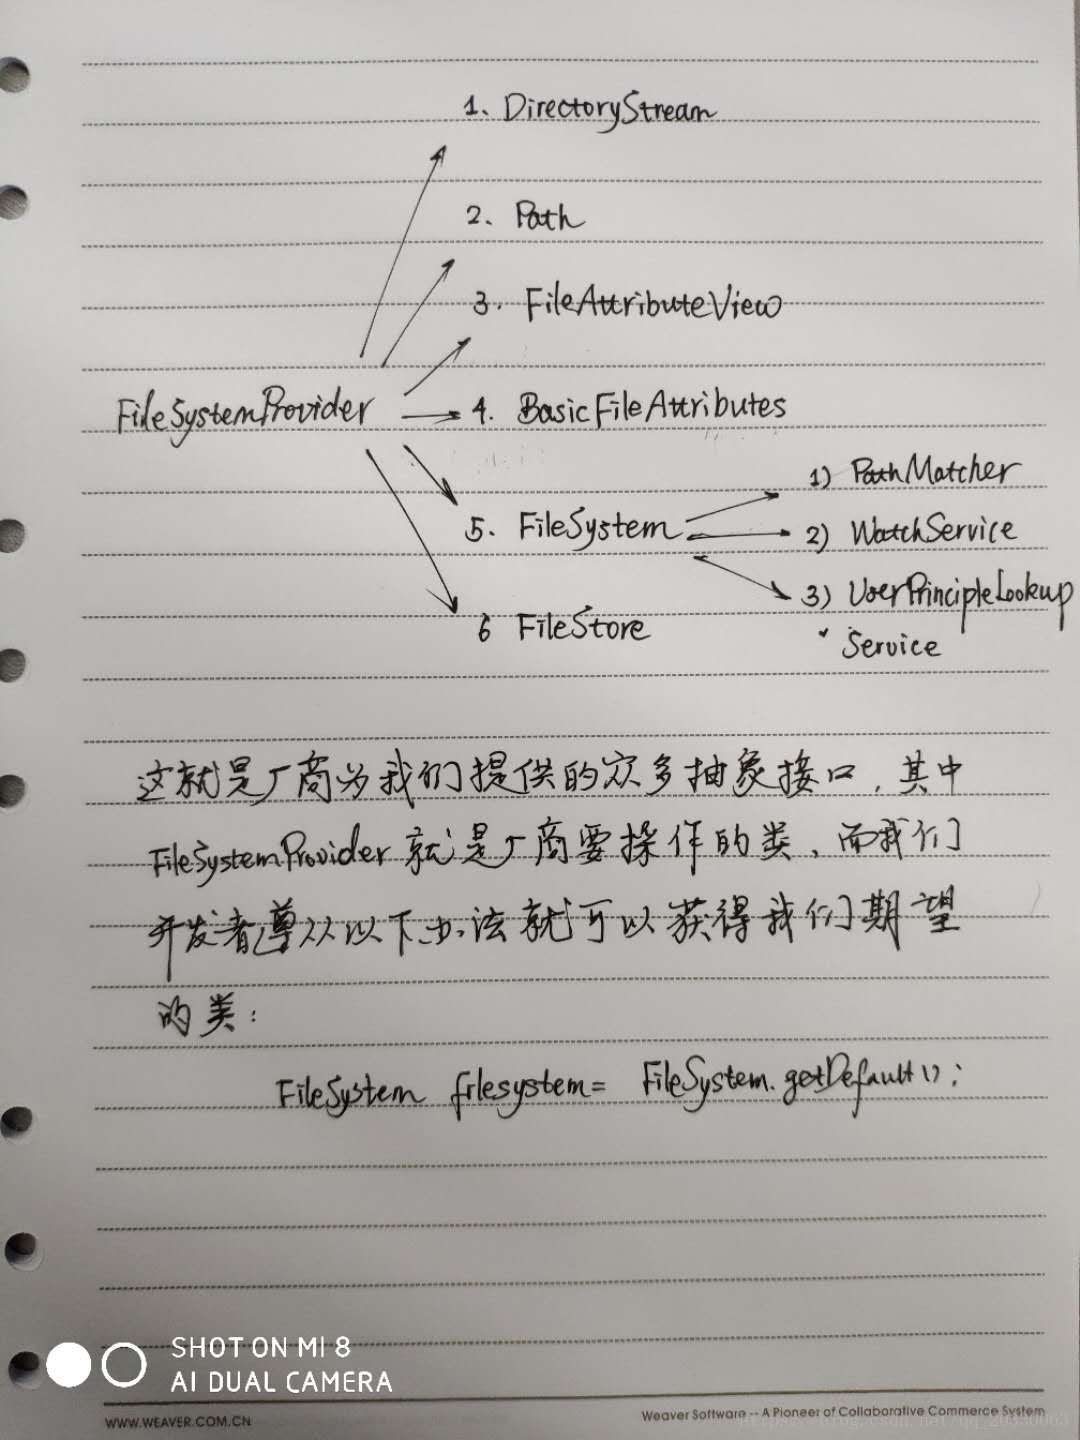 1、DirectoryStream
2、Path
3. FileAttributeView
FileSystemProvider
4. BasicFileAttributes
5. FileSystem
1) PathMatcher
2) WatchService
3) UserPrincipleLookup
Service
6 FileStore
这就是厂商为我们提供的众多抽象接口，其中
FileSystemProvider 就是厂商要操作的类、而我们
开发者遵从以下办法就可以获得我们期望
的类：
FileSystem filesystem = FileSystem.getDefault();
SHOT ON MI 8
AI DUAL CAMERA
WWW.WEAVER.COM.CN
Weaver Software -- A Pioneer of Collaborative Commerce System